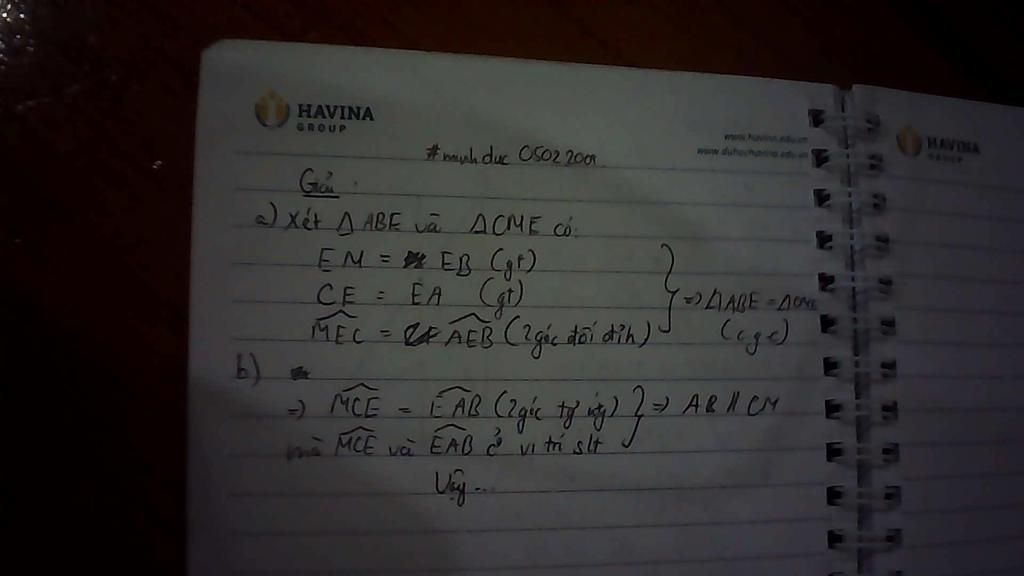 HAVINA
GROUP
www.havina.edu.vn
www.duhochavina.edu.vn
HAVINA
GROUP
#minhduc 05022009
Giải:
a) Xét ΔABE và ΔCME có:
EM = EB (gt)
CE = EA (gt)
MEC = AEB (2 góc đối đỉnh)
=> ΔABE = ΔCME
(c g c)
b)
=> MCE = EAB (2 góc tự ứng) => AB // CM
mà MCE và EAB ở vị trí slt
Vậy...